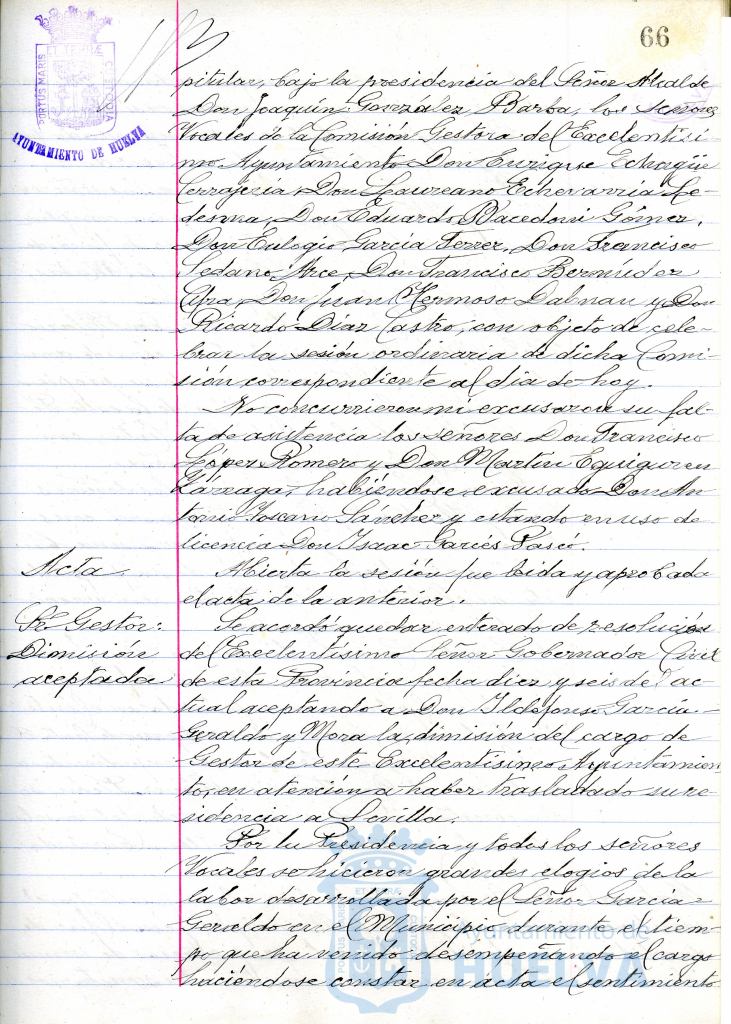 66
PORTUS MARIS ET TERRÆ CUSTODIA
AYUNTAMIENTO DE HUELVA
pitular, bajo la presidencia del Señor Alcalde
Don Joaquín González Barba, los Señores
Vocales de la Comisión Gestora del Excelentísi-
mo Ayuntamiento Don Enrique Echagüe
Cerrajería, Don Laureano Echevarría Le-
desma, Don Eduardo Bacedoni Gómez,
Don Eulogio García Ferrer, Don Francisco
Sedano Arce, Don Francisco Bermúdez
Don Juan Hermoso Dalnau y Don
Ricardo Díaz Castro, con objeto de cele-
brar la sesión ordinaria de dicha Comi-
sión correspondiente al día de hoy.
No concurrieron ni excusaron su fal-
ta de asistencia los señores Don Francisco
López Romero y Don Martín Eguiguren
habiéndose excusado Don An-
tonio Toscano Sánchez y estando en uso de
licencia Don Isaac Garcés Pascó.
Acta.
Abierta la sesión fue leida y aprobada
el acta de la anterior.
Sr. Gestor:
Dimisión
aceptada
Se acordó quedar enterado de resolución
del Excelentísimo Señor Gobernador Civil
de esta Provincia fecha diez y seis del ac-
tual aceptando a Don Ildefonso García-
Geraldo y Mora la dimisión del cargo de
Gestor de este Excelentísimo Ayuntamien-
to, en atención a haber trasladado su re-
sidencia a Sevilla.
Por la Presidencia y todos los señores
Vocales se hicieron grandes elogios de la
labor desarrollada por el Señor García-
Geraldo en el Municipio durante el tiem-
po que ha venido desempeñando el cargo
haciéndose constar en acta el sentimiento
Ayuntamiento de
HUELVA